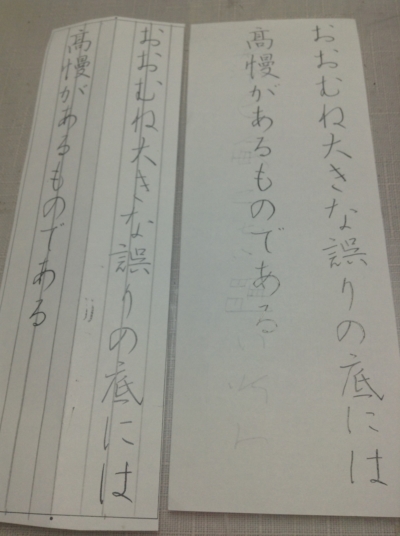 おおむね大きな誤りの底には
高慢があるものである
おおむね大きな誤りの底には
高慢があるものである